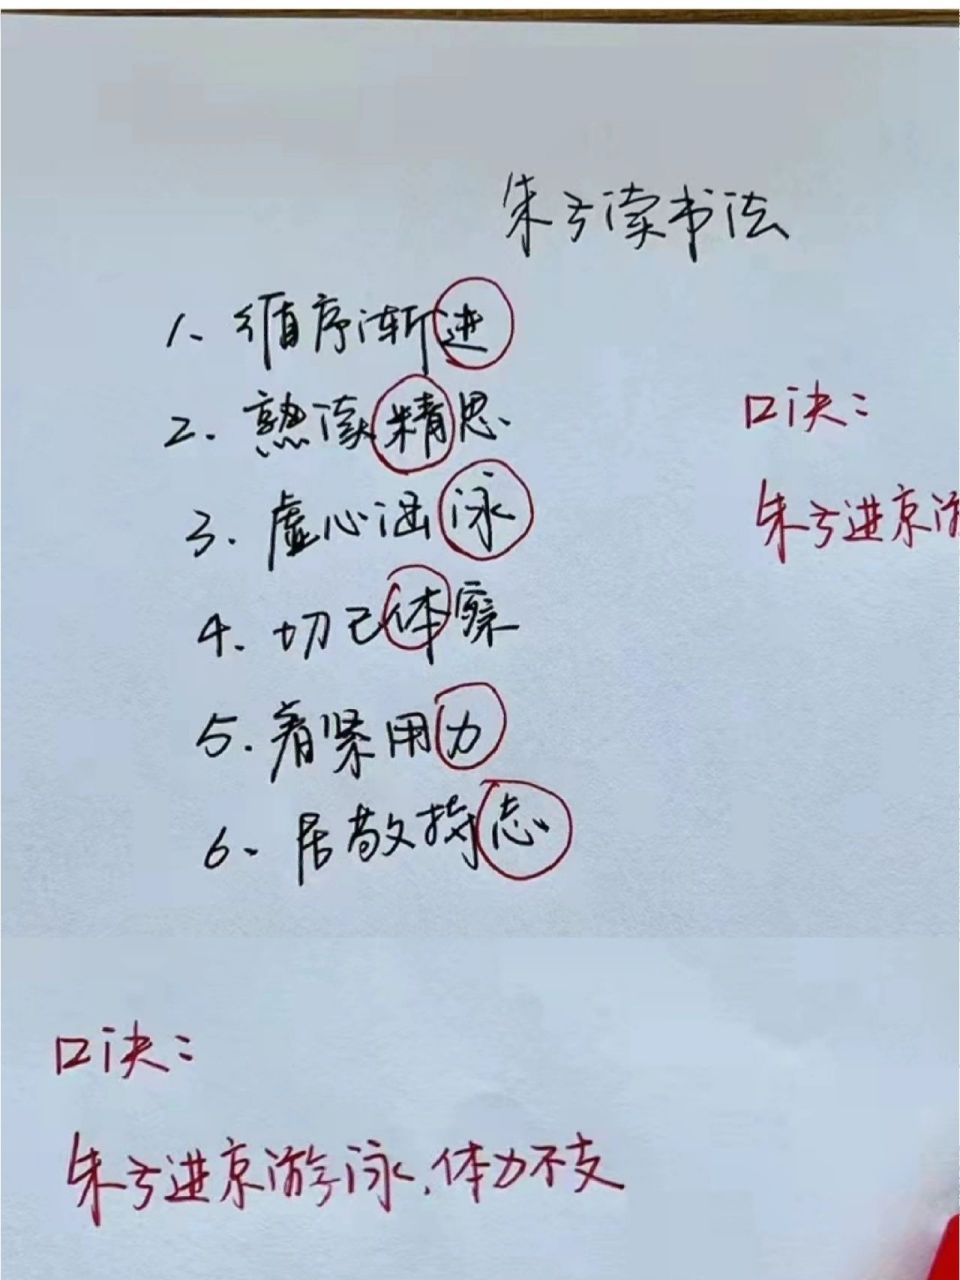 朱子读书法
1、循序渐进
2.熟读精思
3.虚心涵泳
4.切己体察
5.着紧用力
6.居敬持志
口诀：
朱子进京游
口诀：
朱子进京游泳，体力不支